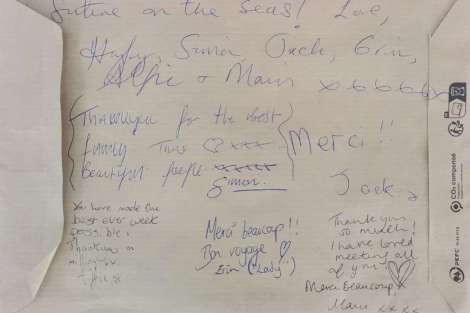 future on the seas! Love,
Simon Jack, Erin,
Alfie + Mairi xoooox
Thankyou for the best
funny Time ♡ xxx
beautiful people xxxxx
Simon.
Merci!!
Jack x
You have made the
best ever week
possible!
Thankyou a
million x
Alfie x
Merci beaucoup!!
Bon voyage ♡
Erin (Lady!)
Thank you
so much!
I have loved
meeting all
of you
Merci beaucoup!
Mairi xxxx
CO₂ compensé
PEFC